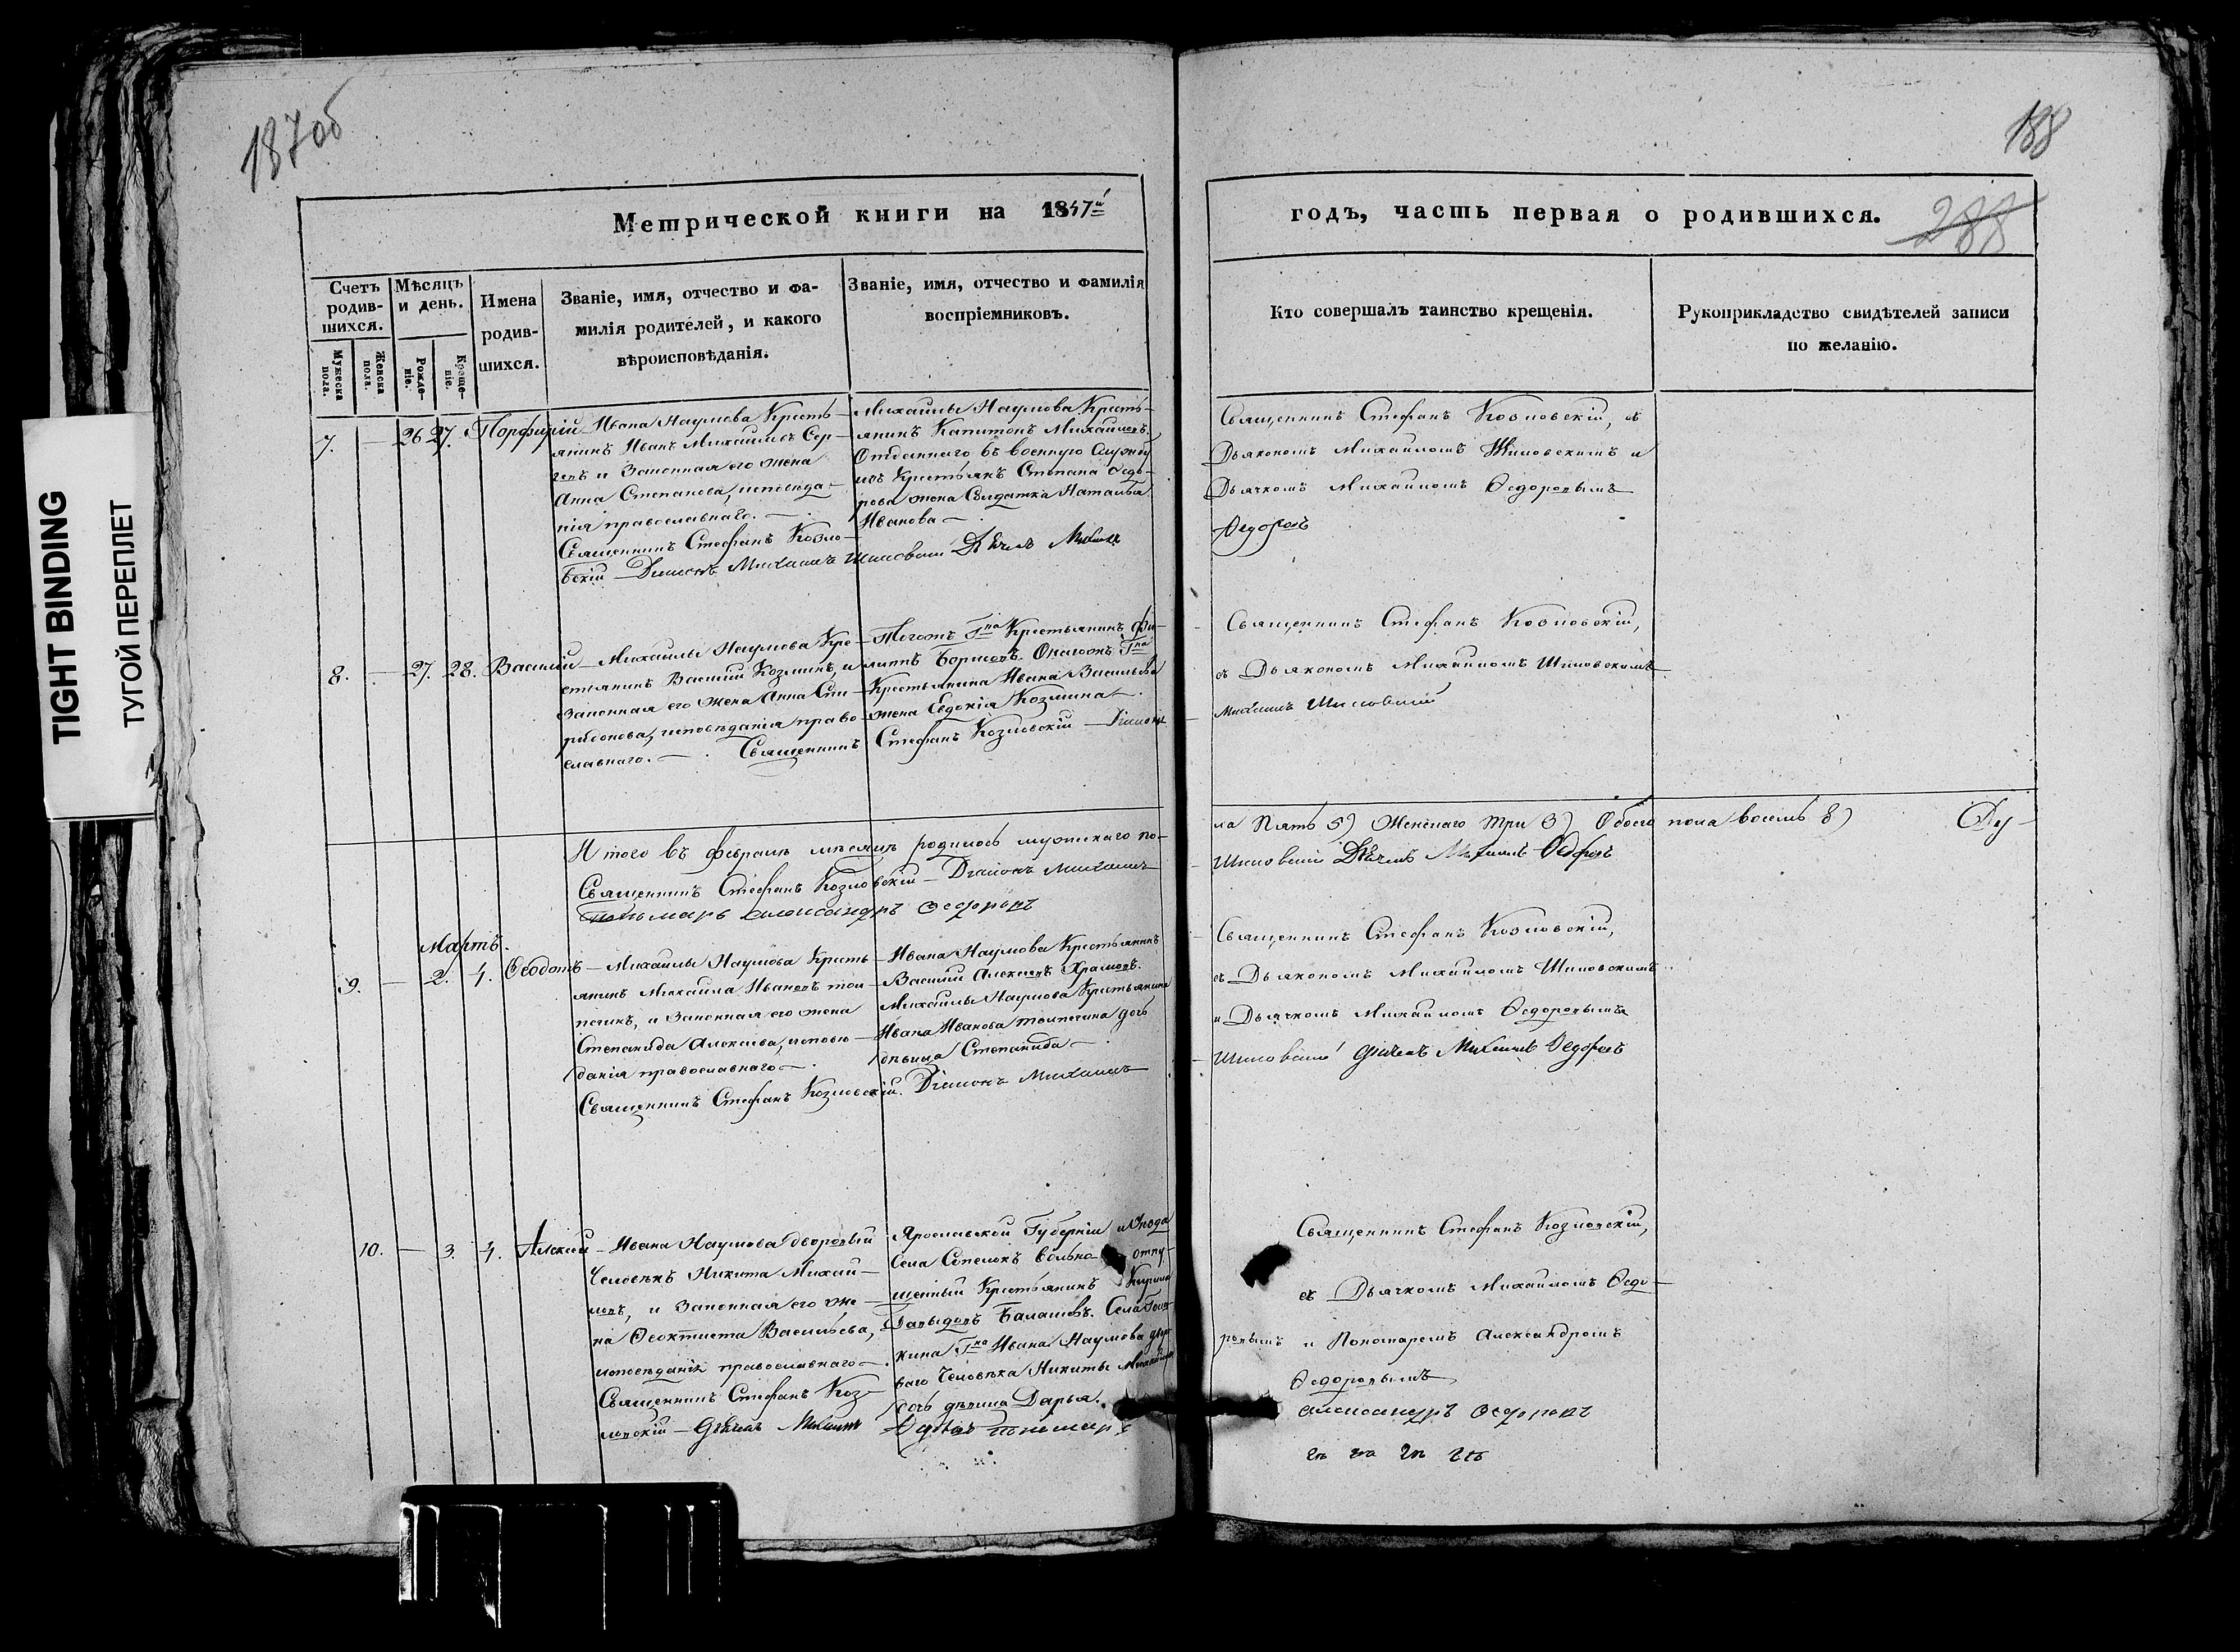 187об
188
Метрической книги на 1847й
годъ, часть первая о родившихся.
288
Счетъ родив-шихся.
Мѣсяцъ и день.
Имена родив-шихся.
Званіе, имя, отчество и фа-
милія родителей, и какого
вѣроисповѣданія.
Званіе, имя, отчество и фамилія
воспріемниковъ.
Кто совершалъ таинство крещенія.
Рукоприкладство свидѣтелей записи
по желанію.
Мужеска пола.
Женска пола.
Рожде-ніе.
Креще-ніе.
7. — 26 27. Порфирій
Ивана Наумова Кресть-
янинъ Иванъ Михайловъ Сер-
и Законная его жена
Анна Степанова, исповѣда-
нія православнаго.
Священникъ Стефанъ Козло-
вскій — Діаконъ Михаилъ Шиловскій Дьячекъ Михаилъ
Михайлы Наумова Кресть-
янинъ Капитонъ Михайловъ.
Отданнаго въ военную службу
изъ Крестьянъ Степана Ѳедо-
рова жена Солдатка Наталья
Иванова —
Священникъ Стефанъ Козловскій, съ
Дьякономъ Михаиломъ Шиловскимъ и
Дьячкомъ Михаиломъ Ѳедоровымъ
Ѳедоровъ
8. — 27. 28. Василій
Михайлы Наумова Кре-
стьянинъ Василій Козминъ, и
Законная его жена Анна Спи-
ридонова, исповѣданія право-
славнаго. — Священникъ Стефанъ Козловскій — Діаконъ
Тогожъ Гна Крестьянинъ Фи-
липпъ Борисовъ. Онагожъ Гна
Крестьянина Ивана Васильева
жена Евдокія Козмина —
Священникъ Стефанъ Козловскій,
съ Дьякономъ Михаиломъ Шиловскимъ
Михаилъ Шиловскій
Итого въ февралѣ мѣсяцѣ родилось мужескаго по-
ла пять 5) Женскаго три 3) Обоего пола восемь 8)
Священникъ Стефанъ Козловскій — Діаконъ Михаилъ
Шиловскій Дьячекъ Михаилъ Ѳедоровъ
Пономарь Александръ Ѳедоровъ
Мартъ.
9. — 2. 4. Ѳеодотъ
Михайлы Наумова Кресть-
янинъ Михайла Ивановъ
и Законная его жена
Степанида Алексѣева, исповѣ-
данія православнаго —
Священникъ Стефанъ Козловскій. Діаконъ Михаилъ
Ивана Наумова Крестьянинъ
Василій Алексѣевъ Храмовъ.
Михайлы Наумова Крестьянина
Ивана Иванова дочь
дѣвица Степанида —
Священникъ Стефанъ Козловскій,
съ Дьякономъ Михаиломъ Шиловскимъ
и Дьячкомъ Михаиломъ Ѳедоровымъ
Шиловскій Дьячекъ Михаилъ Ѳедоровъ
10. — 3. 4. Алексій
Ивана Наумова дворовый
Человѣкъ Никита Михай-
ловъ, и Законная его же-
на Ѳеоктиста Васильева,
исповѣданія православнаго —
Священникъ Стефанъ Коз-
ловскій — Дьячекъ Михаилъ Ѳедоровъ Пономарь
Ярославской Губерніи
Села вольно отпу-
щенный Крестьянинъ
Давыдовъ Балашовъ. Села
Гна Ивана Наумова дворо-
ваго Человѣка Никиты Михайлова
дочь дѣвица Дарья.
Священникъ Стефанъ Козловскій,
съ Дьячкомъ Михаиломъ Ѳедо-
ровымъ и Пономаремъ Александромъ
Ѳедоровымъ
Александръ Ѳедоровъ
TIGHT BINDING
ТУГОЙ ПЕРЕПЛЕТ